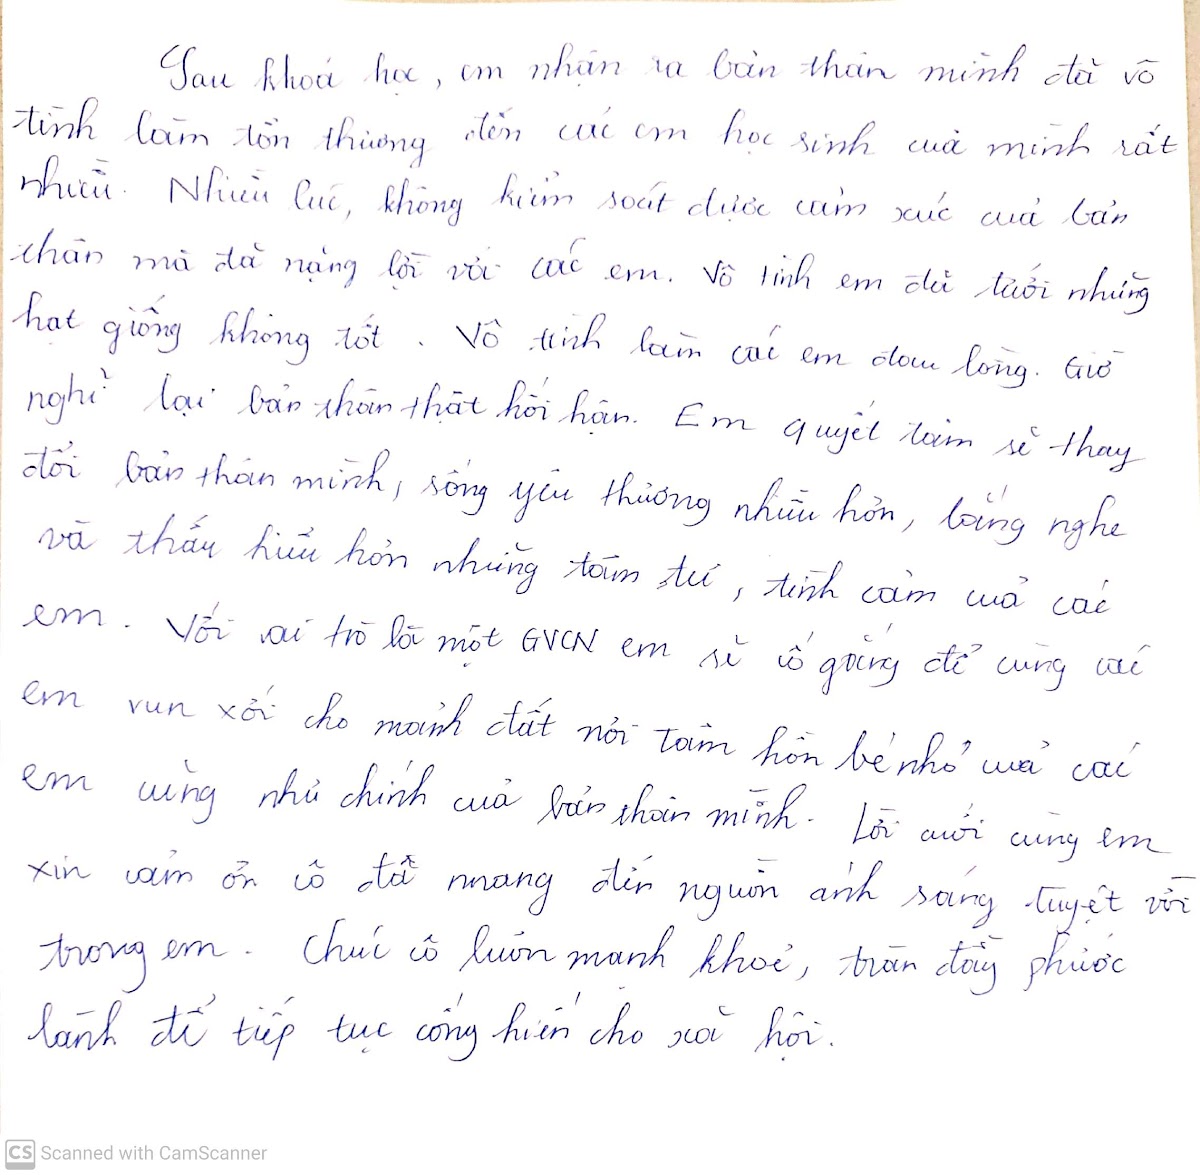 Sau khoá học, em nhận ra bản thân mình đã vô
tình làm tổn thương đến các em học sinh của mình rất
nhiều. Nhiều lúc, không kiểm soát được cảm xúc của bản
thân mà đã nặng lời với các em. Vô tình em đã tưới những
hạt giống không tốt. Vô tình làm các em đau lòng. Giờ
nghĩ lại bản thân thật hối hận. Em quyết tâm sẽ thay
đổi bản thân mình, sống yêu thương nhiều hơn, lắng nghe
và thấu hiểu hơn những tâm tư, tình cảm của các
em. Với vai trò là một GVCN em sẽ cố gắng để cùng các
em vun xới cho mảnh đất nơi tâm hồn bé nhỏ của các
em cũng như chính của bản thân mình. Lời cuối cùng em
xin cảm ơn cô đã mang đến nguồn ánh sáng tuyệt vời
trong em. Chúc cô luôn mạnh khoẻ, tràn đầy phước
lành để tiếp tục cống hiến cho xã hội.
CS Scanned with CamScanner